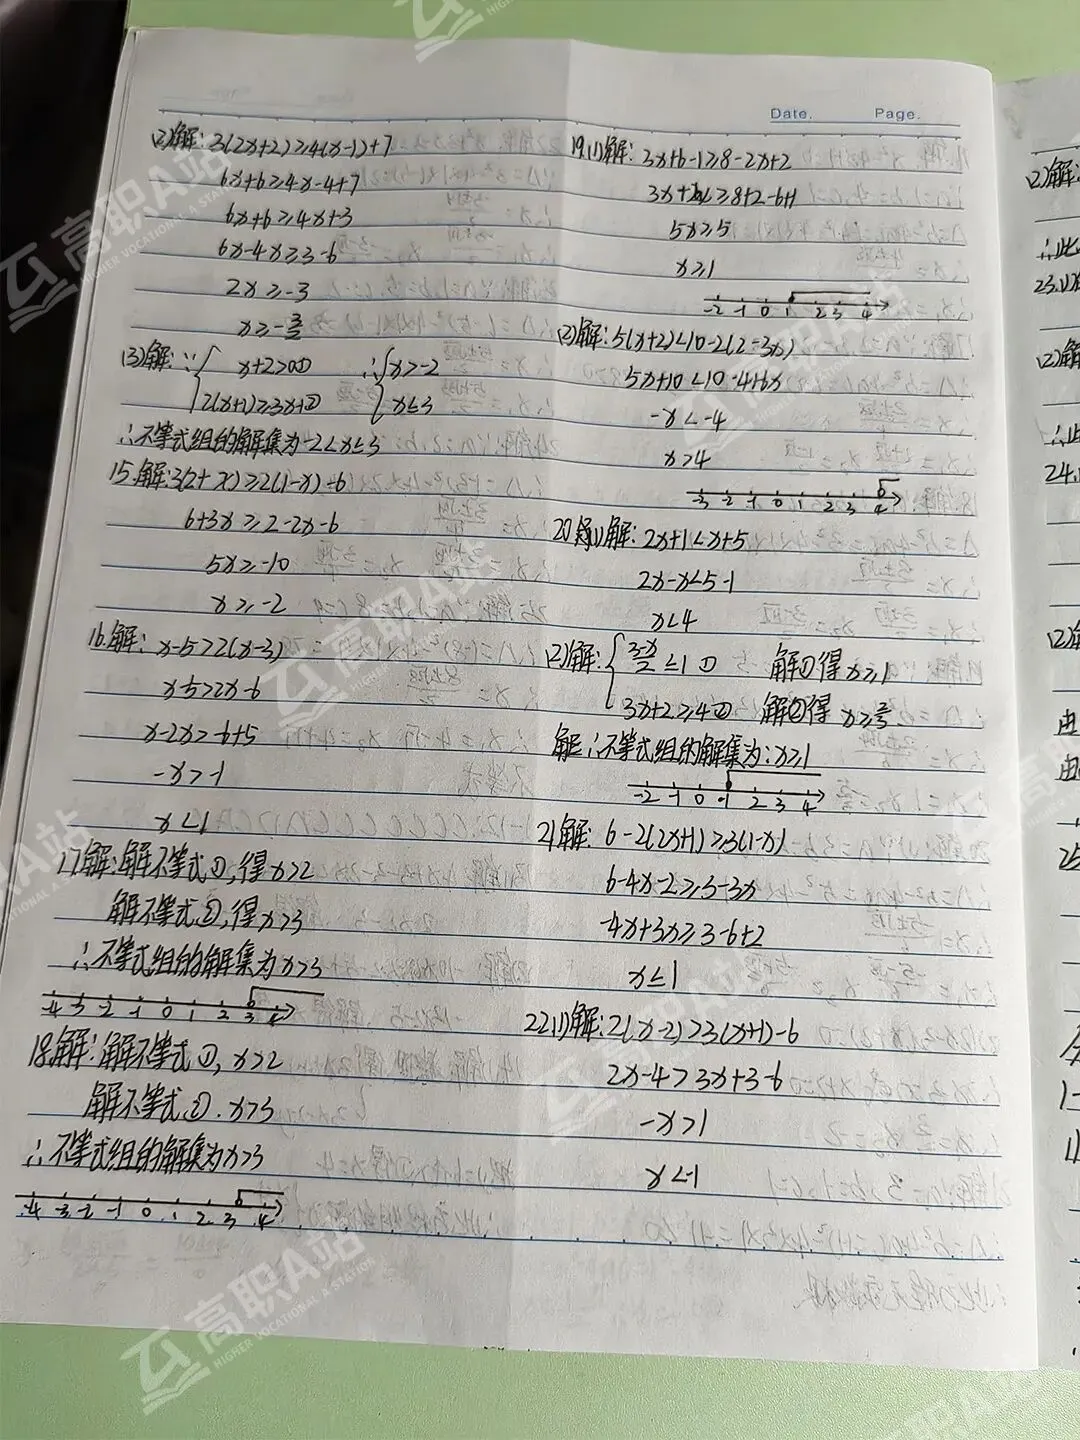 Date. Page.
(2)解: 3(2x+2)≥4(x-1)+7
6x+6≥4x-4+7
6x+6≥4x+3
6x-4x≥3-6
2x≥-3
x≥-3/2
(3)解: ∵{ x+2>0① ∴{ x>-2
2(x+1)≥3x-1② x≤3
∴不等式组的解集为-2<x≤3
15.解: 3(2+x)≥2(1-x)-6
6+3x≥2-2x-6
5x≥-10
x≥-2
16.解: x-5>2(x-3)
x-5>2x-6
x-2x>-6+5
-x>-1
x<1
17解:解不等式①,得x>2
解不等式②,得x>3
∴不等式组的解集为x>3
-4 -3 -2 -1 0 1 2 3 4
18.解:解不等式①, x>2
解不等式②. x>3
∴不等式组的解集为x>3
-4 -3 -2 -1 0 1 2 3 4
19.(1)解: 3x+6-1≥8-2x+2
3x+2x≥8+2-6+1
5x≥5
x≥1
-2 -1 0 1 2 3 4
(2)解: 5(x+2)<10-2(2-3x)
5x+10<10-4+6x
-x<-4
x>4
-3 -2 -1 0 1 2 3 4
20 (1)解: 2x+1<x+5
2x-x<5-1
x<4
(2)解:{ 3-x/2 ≤1 ① 解①得x≥1
3x+2≥4② 解②得 x≥2/3
∴不等式组的解集为:x≥1
-2 -1 0 1 2 3 4
21解: 6-2(2x+1)≥3(1-x)
6-4x-2≥3-3x
-4x+3x≥3-6+2
x≤1
22.(1)解: 2(x-2)>3(x+1)-6
2x-4>3x+3-6
-x>1
x<-1
(2)解:
23.(1)
(2)解
24.
25
高职A站
HIGHER VOCATIONAL A STATION